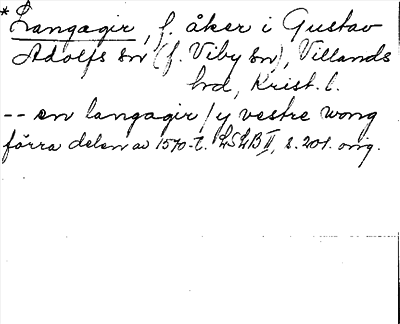 * Langagir, f. åker i Gustav
Adolfs sn (f. Viby sn), Villands
hd, Krist. l.
-- en langagir / y vestre wong
förra delen av 1570-t. LSLB II, s. 201. orig.